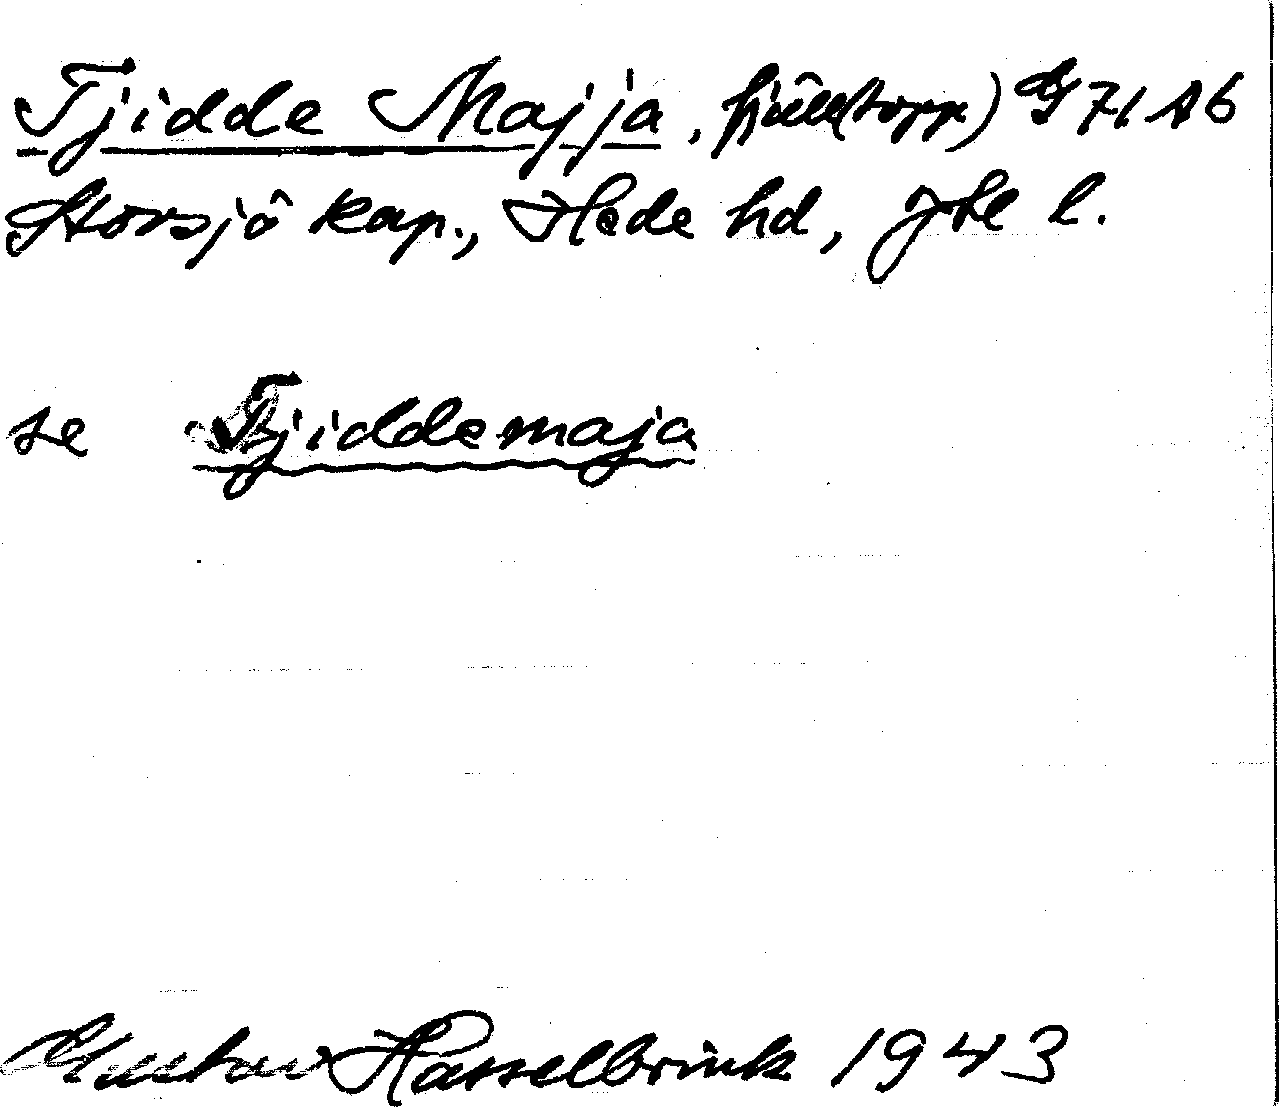 Tjidde Majja, fjälltopp) G 71 A b
Storsjö kap., Hede hd, Jtl l.
se Tjiddemaja
Gustav Hasselbrink 1943